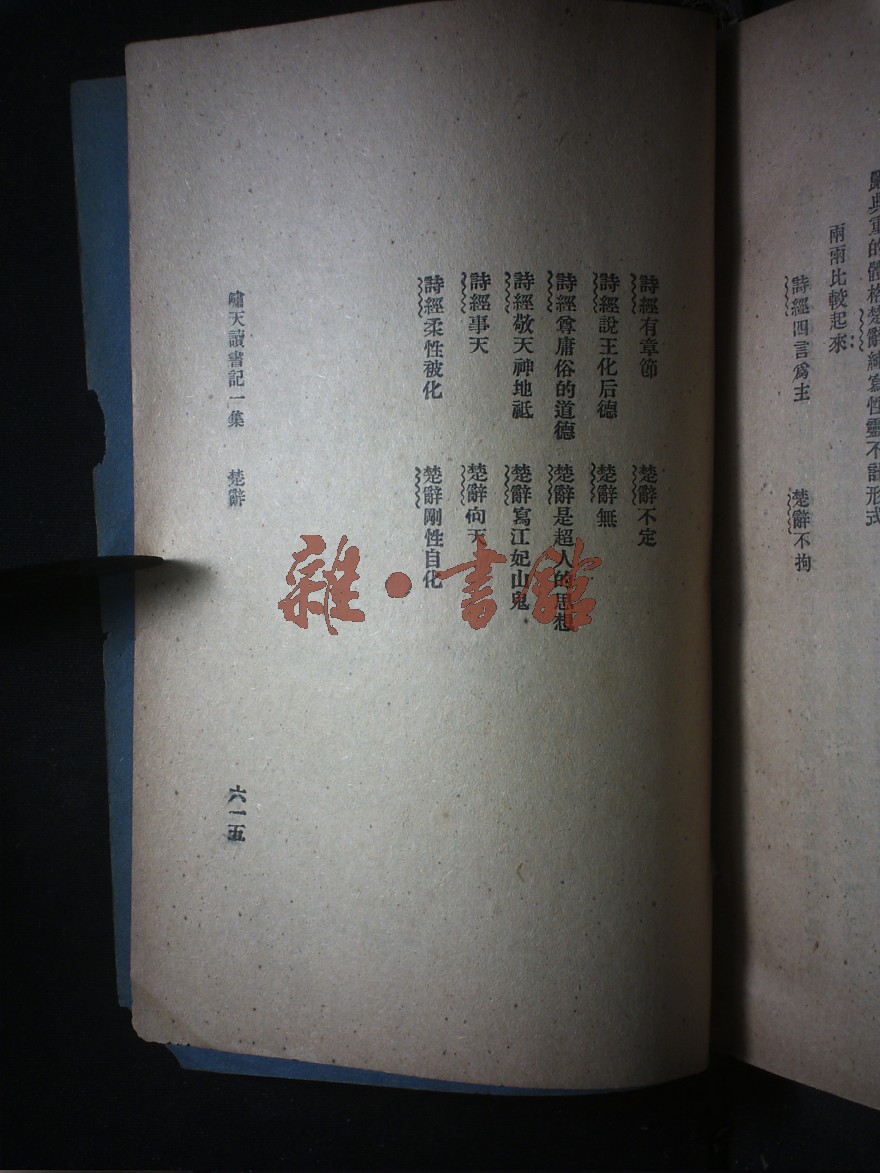 嚴典重的體格楚辭練寫性靈不計形式
兩兩比較起來：
詩經四言爲主　楚辭不拘
詩經有章節　楚辭不定
詩經說王化后德　楚辭無
詩經尊庸俗的道德　楚辭是超人的思想
詩經敬天神地祗　楚辭寫江妃山鬼
詩經事天　楚辭向天
詩經柔性被化　楚辭剛性自化
嘯天讀書記一集　楚辭
六一五
雜·書館